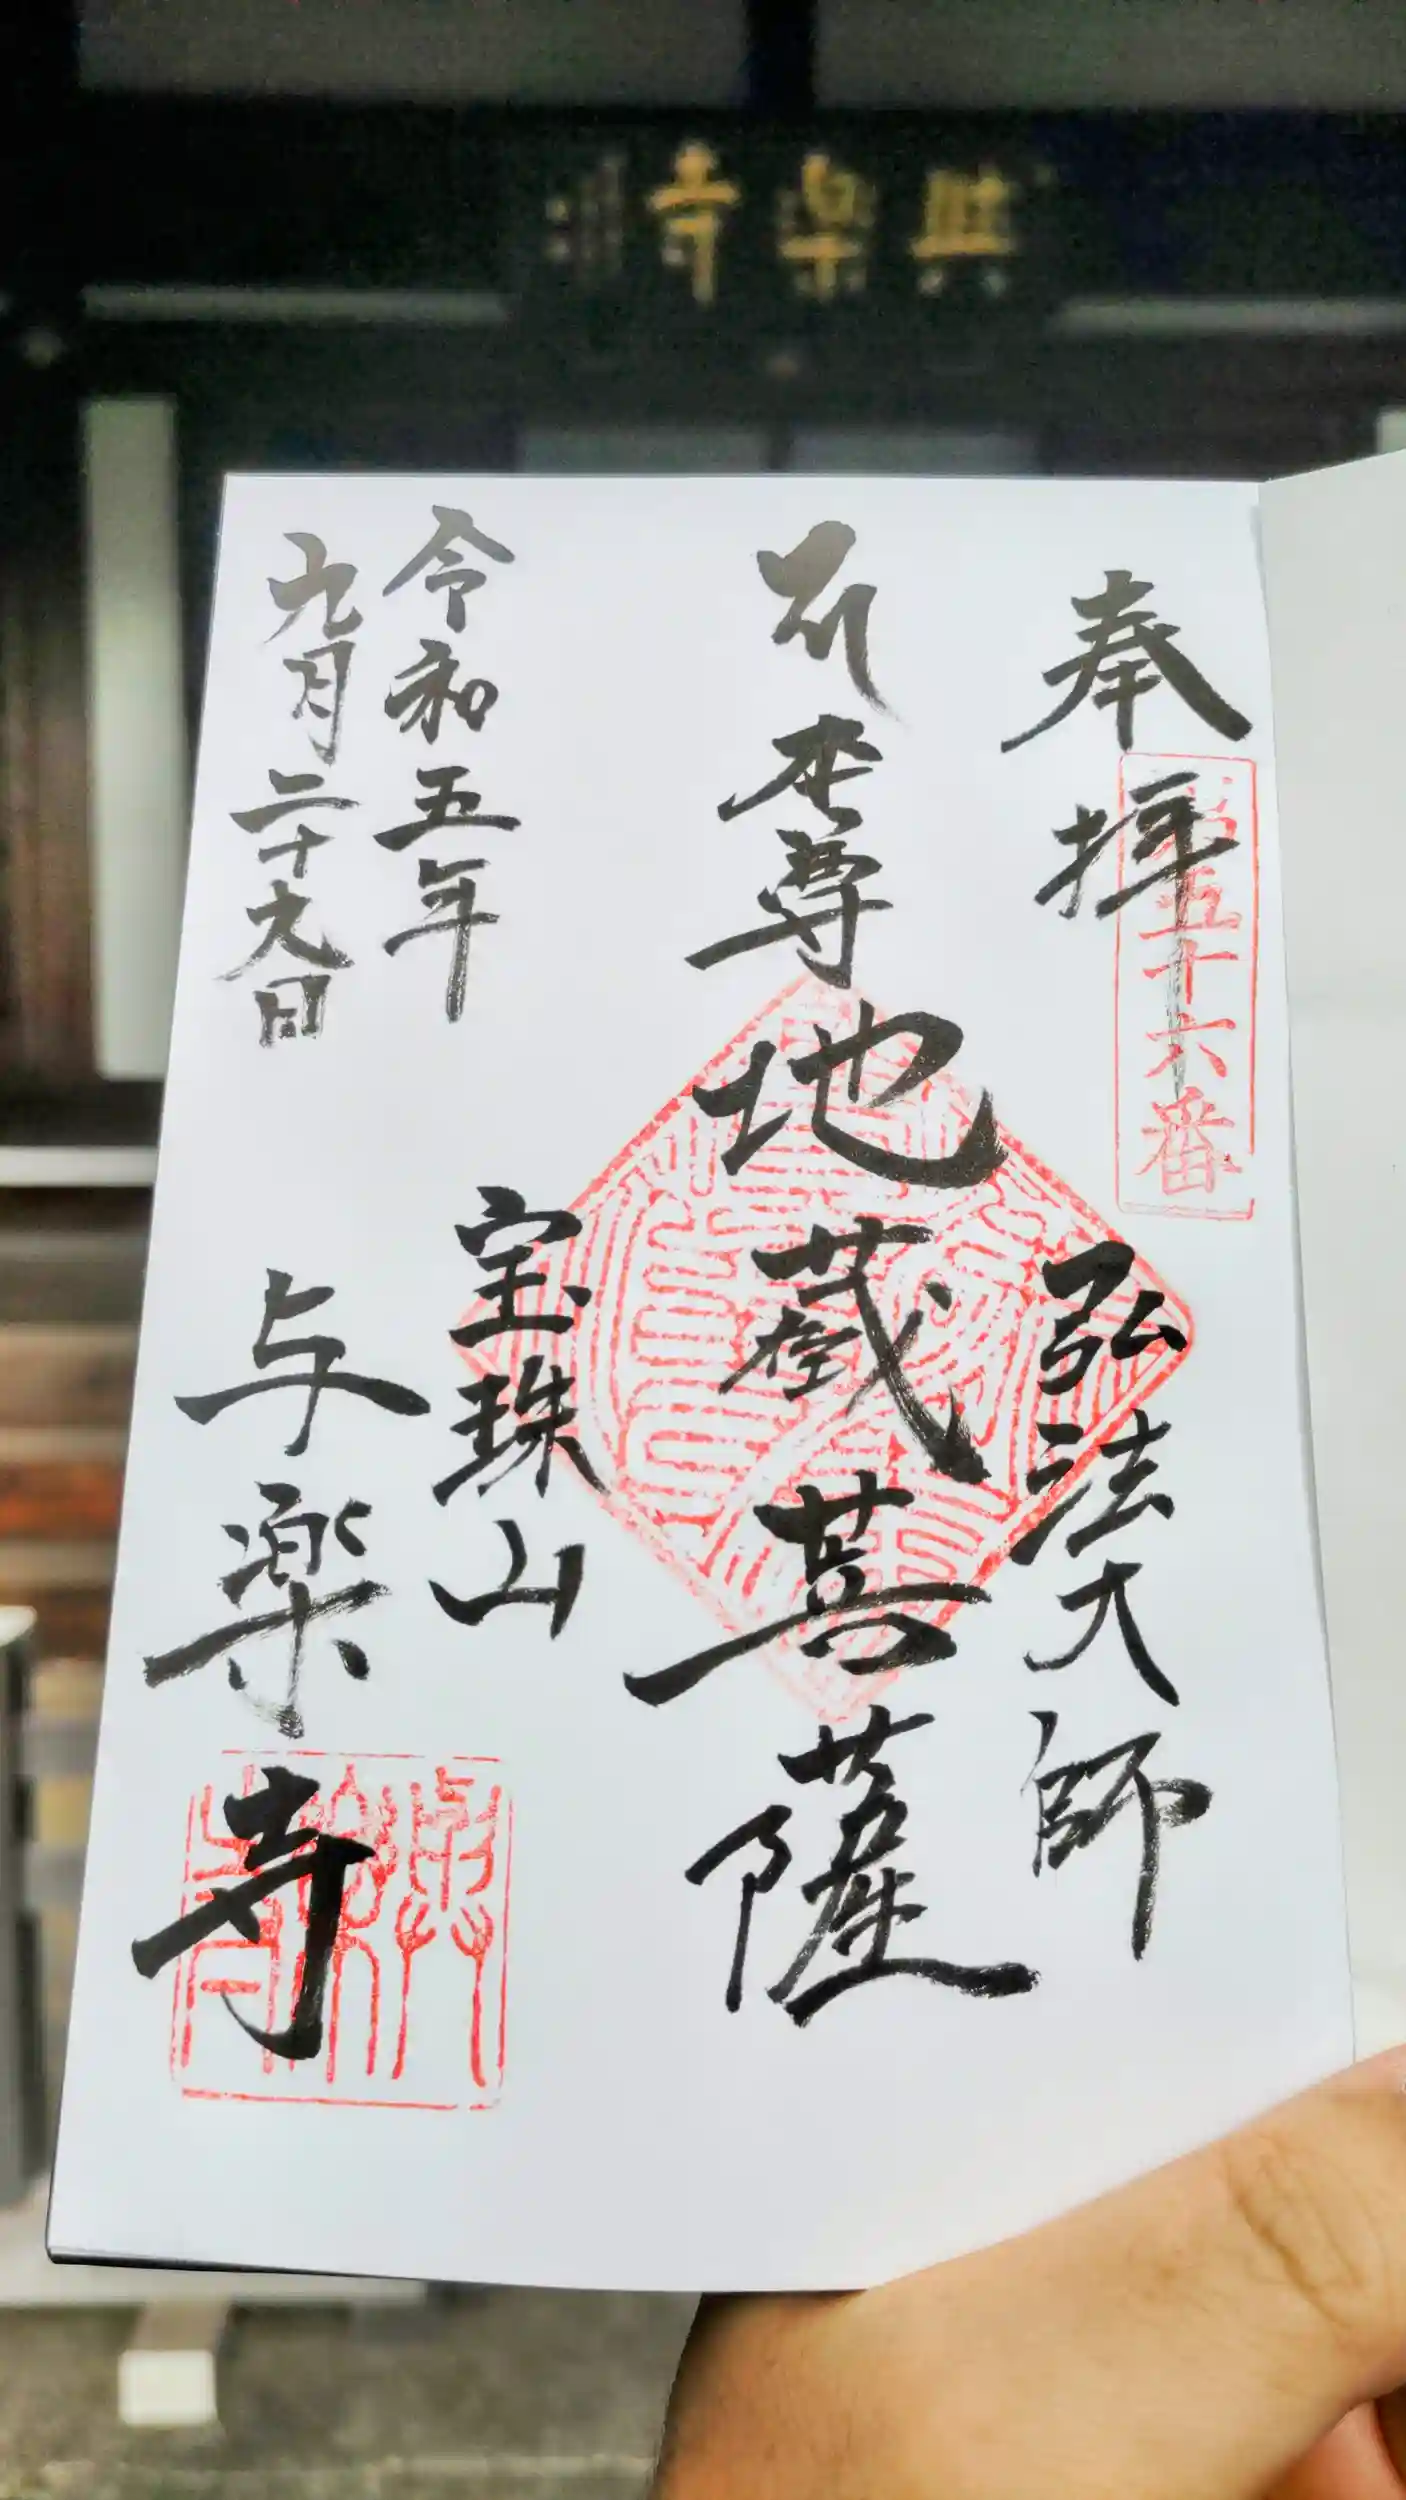 與楽寺
奉拝
第五十六番
弘法大師
本尊
地蔵菩薩
令和五年
九月二十九日
宝珠山
与楽寺